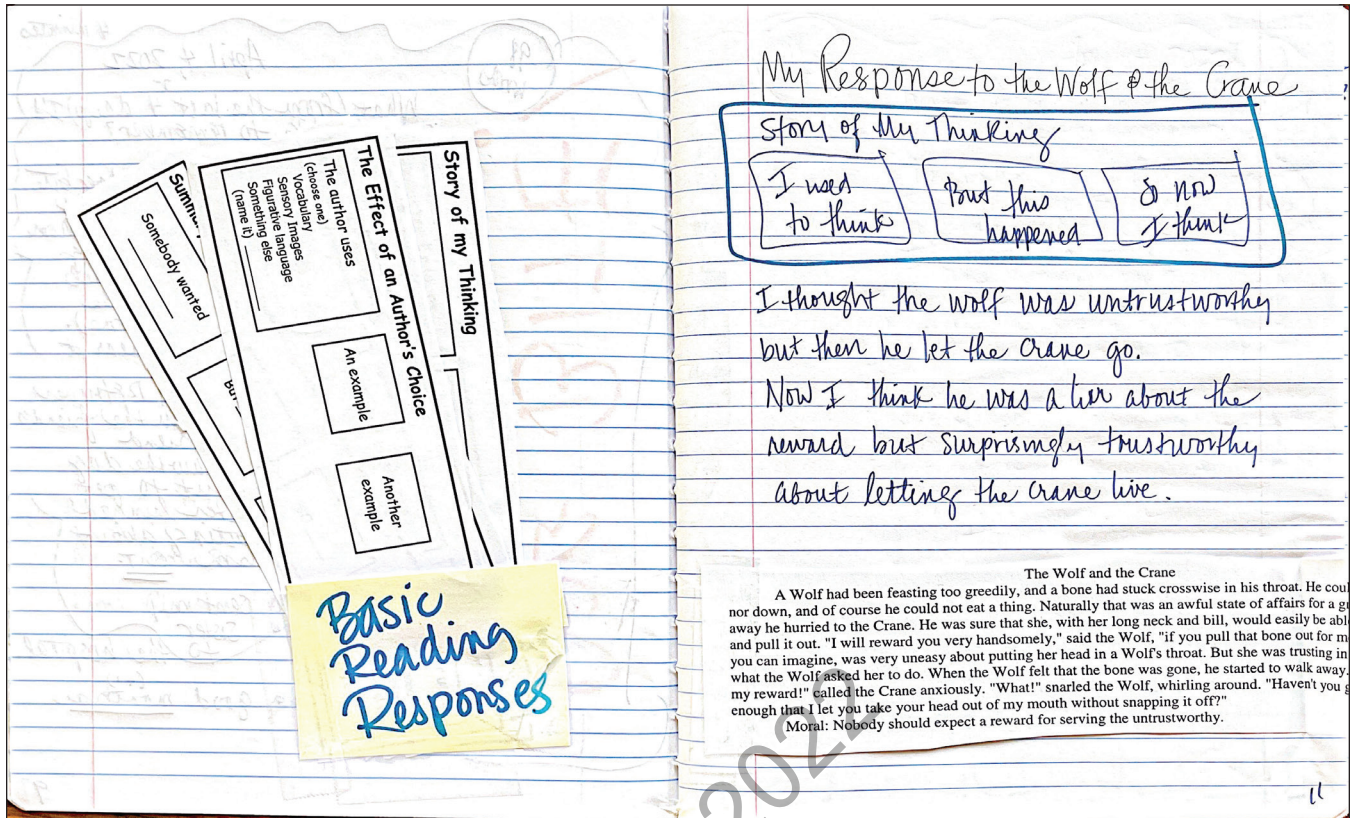 Story of my Thinking
The Effect of an Author's Choice
The author uses
(choose one)
Vocabulary
Sensory Images
Figurative language
Something else
(name it)
An example
Another
example
Somebody wanted
Basic
Reading
Responses
April 4, 2022
My Response to the Wolf & the Crane
Story of My Thinking
I used
to think
But this
happened
So now
I think
I thought the wolf was untrustworthy
but then he let the crane go.
Now I think he was a lier about the
reward but surprisingly trustworthy
about letting the crane live.
The Wolf and the Crane
A Wolf had been feasting too greedily, and a bone had stuck crosswise in his throat. He
nor down, and of course he could not eat a thing. Naturally that was an awful state of affairs for a
away he hurried to the Crane. He was sure that she, with her long neck and bill, would easily be
and pull it out. "I will reward you very handsomely," said the Wolf, "if you pull that bone out for
you can imagine, was very uneasy about putting her head in a Wolf's throat. But she was trusting in
what the Wolf asked her to do. When the Wolf felt that the bone was gone, he started to walk away.
my reward!" called the Crane anxiously. "What!" snarled the Wolf, whirling around. "Haven't you
enough that I let you take your head out of my mouth without snapping it off?"
Moral: Nobody should expect a reward for serving the untrustworthy.
11
2022